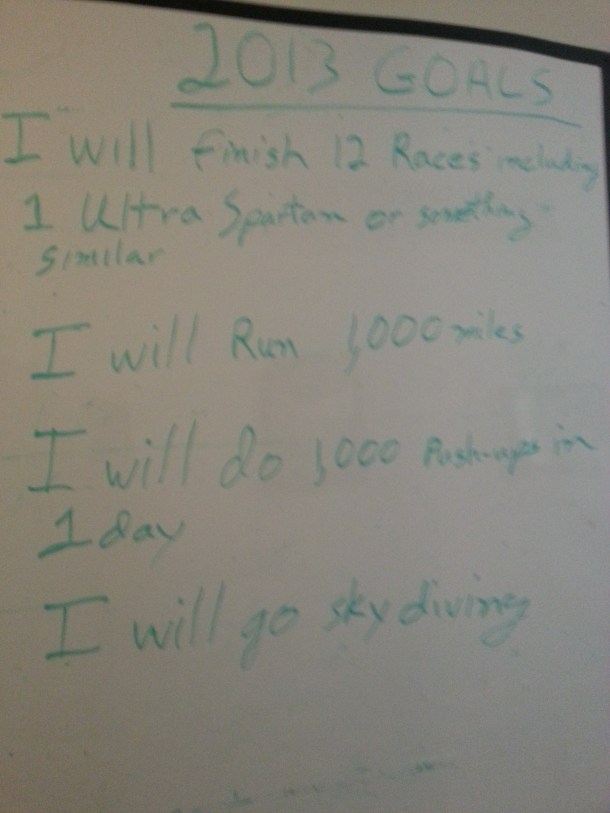 2013 GOALS
I will finish 12 Races including
1 Ultra Spartan or something
similar
I will Run 1,000 miles
I will do 1,000 Push-ups in
1 day
I will go sky diving